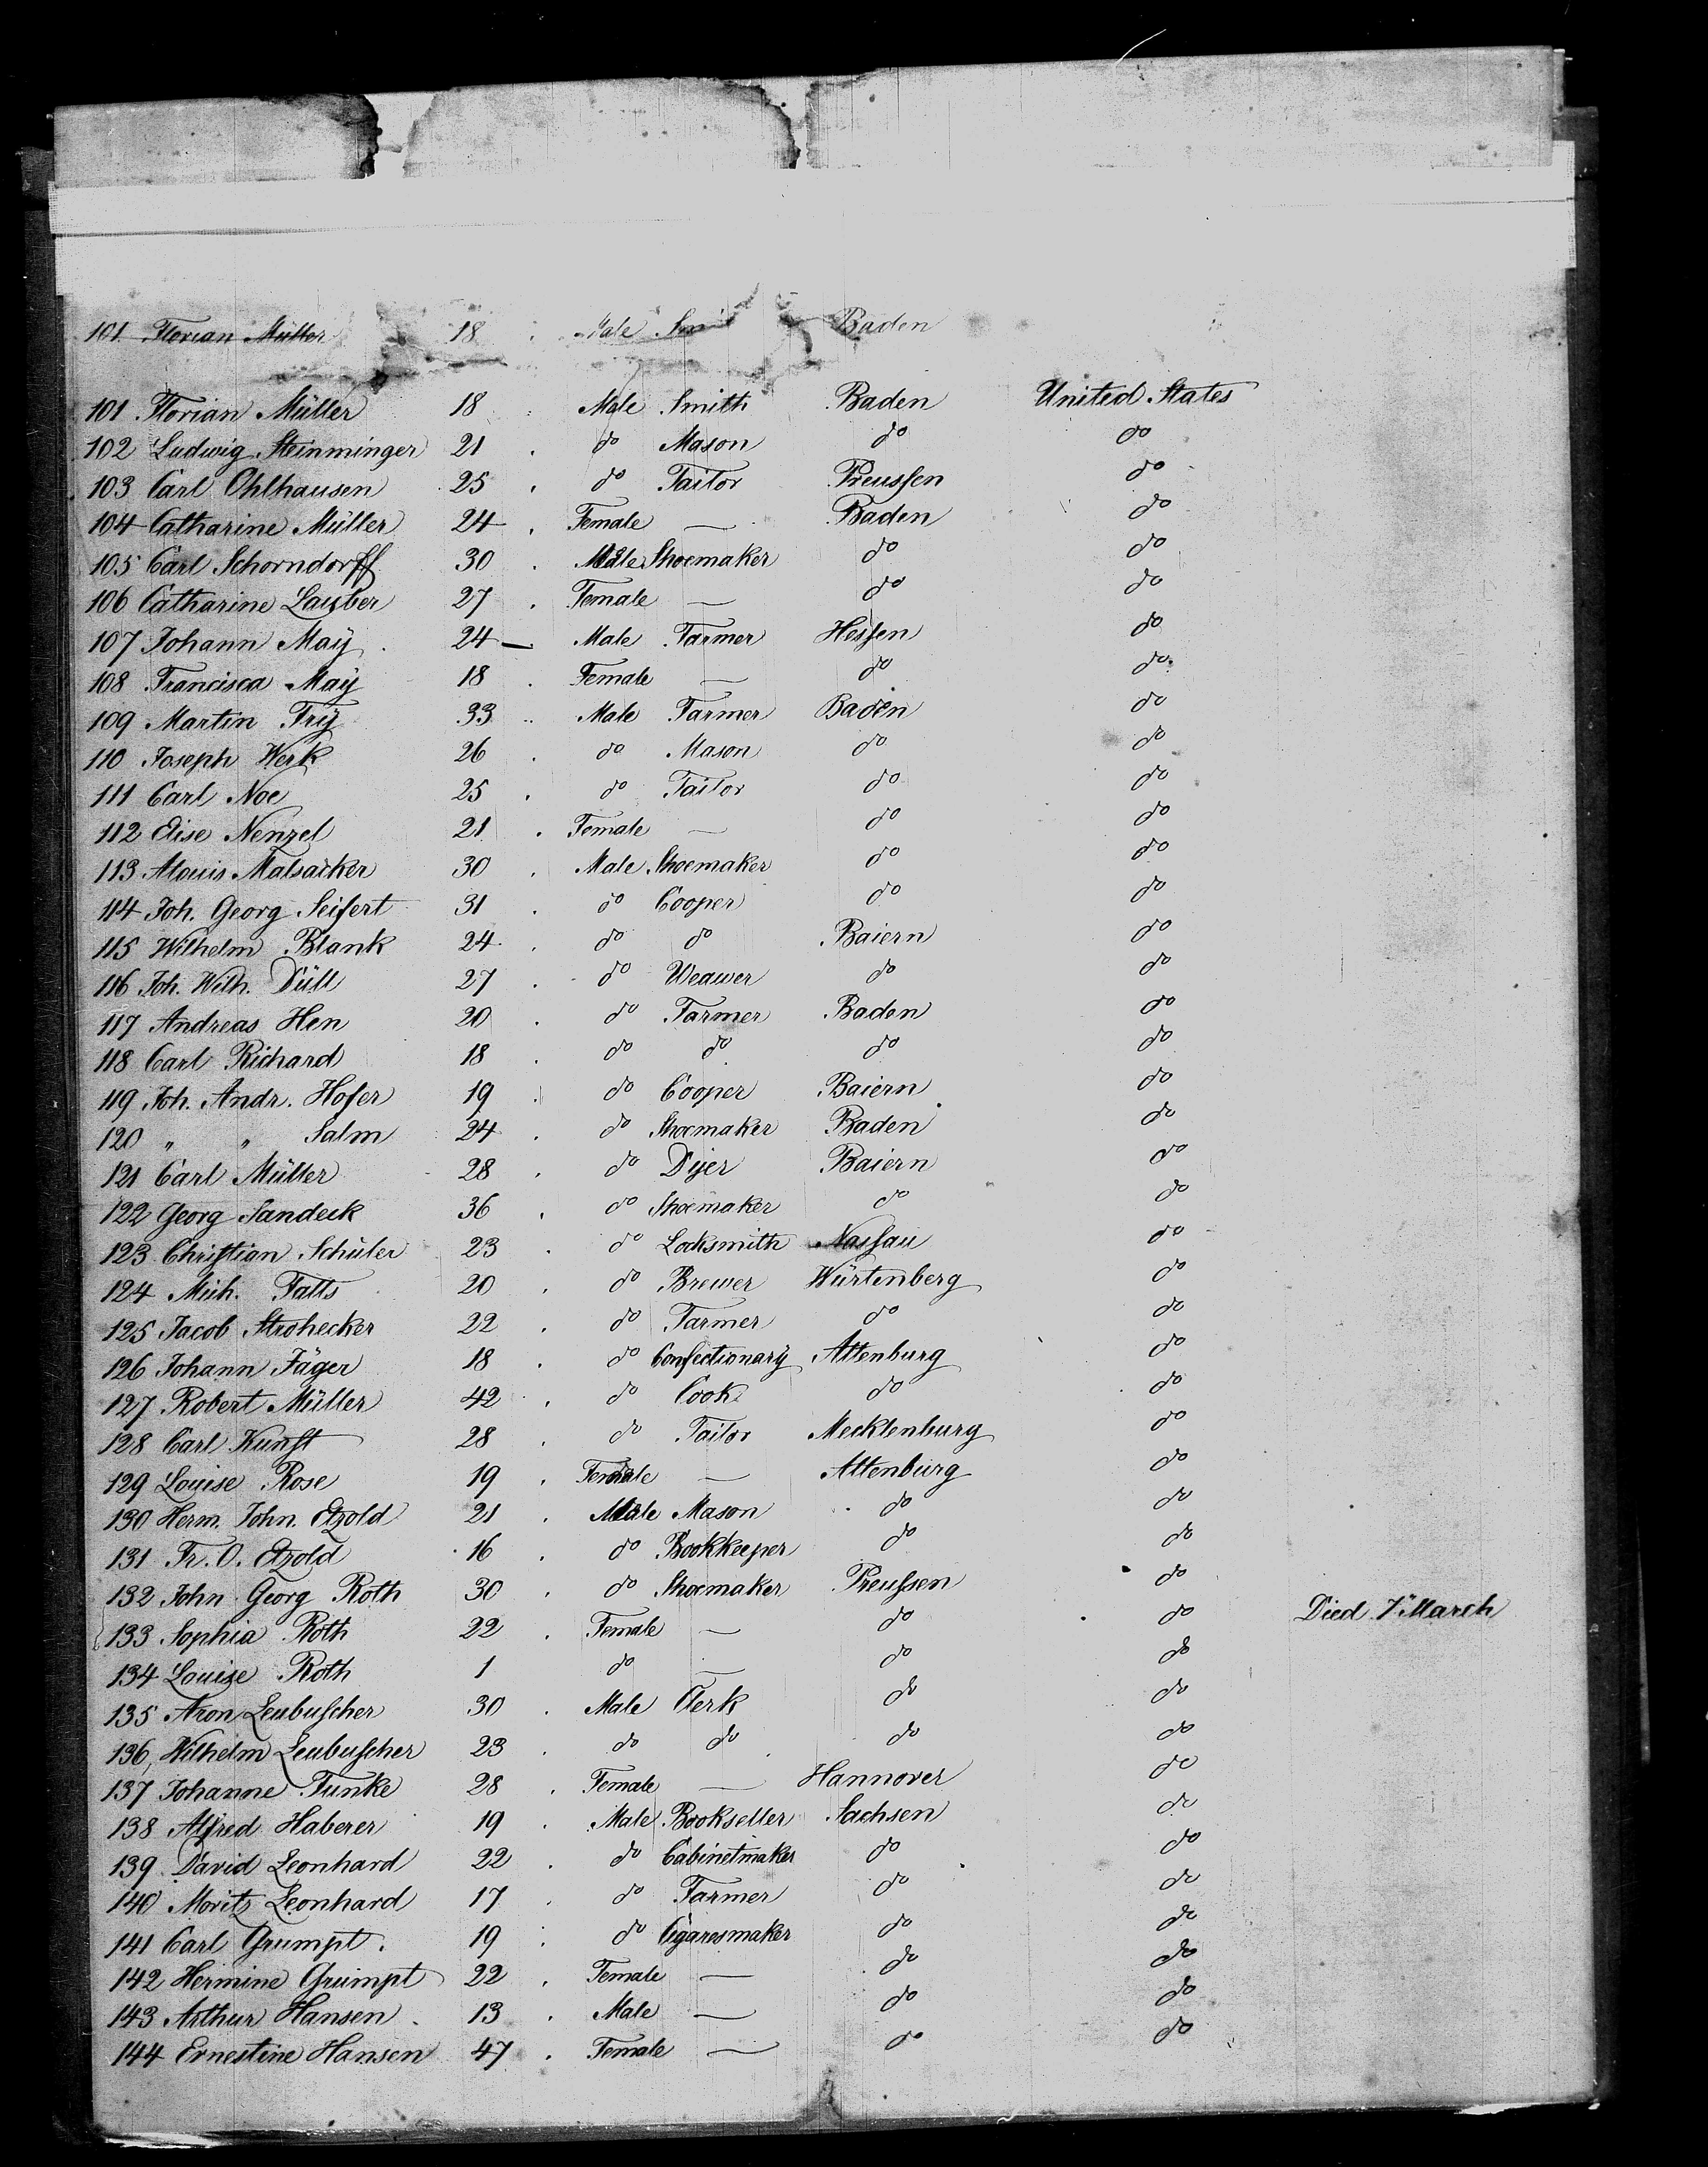 101 Florian Müller 18 Male Smi Baden
101 Florian Müller 18 Male Smith Baden United States
102 Ludwig Steinminger 21 do Mason do do
103 Carl Ohlhausen 25 do Tailor Preussen do
104 Catharine Müller 24 Female — Baden do
105 Carl Schorndorff 30 Male Shoemaker do do
106 Catharine Lauber 27 Female — do do
107 Johann Maÿ 24 — Male Farmer Hessen do
108 Francisca Maÿ 18 Female — do do
109 Martin Frÿ 33 Male Farmer Baden do
110 Joseph Werk 26 do Mason do do
111 Carl Noe 25 do Tailor do do
112 Elise Nenzel 21 Female — do do
113 Alouis Malsacker 30 Male Shoemaker do do
114 Joh. Georg Seifert 31 do Cooper do do
115 Wilhelm Blank 24 do do Baiern do
116 Joh. Wilh. Düll 27 do Weawer do do
117 Andreas Hen 20 do Farmer Baden do
118 Carl Richard 18 do do do do
119 Joh. Andr. Hofer 19 do Cooper Baiern do
120 " " Salm 24 do Shoemaker Baden do
121 Carl Müller 28 do Dÿer Baiern do
122 Georg Sandeck 36 do Shoemaker do do
123 Christian Schüler 23 do Locksmith Nassau do
124 Mich. Falts 20 do Brewer Würtenberg do
125 Jacob Strohecker 22 do Farmer do do
126 Johann Jäger 18 do Confectionarÿ Altenburg do
127 Robert Müller 42 do Cook do do
128 Carl Kunst 28 do Tailor Mecklenburg do
129 Louise Rose 19 Female — Altenburg do
130 Herm. John. Etzold 21 Male Mason do do
131 Fr. O. Etzold 16 do Bookkeeper do do
132 John Georg Roth 30 do Shoemaker Preussen do
133 Sophia Roth 22 Female — do do Died 7 March
134 Louise Roth 1 do — do do
135 Aron Leubuscher 30 Male Clerk do do
136 Wilhelm Leubuscher 23 do do do do
137 Johanne Funke 28 Female — Hannover do
138 Alfred Haberer 19 Male Bookseller Sachsen do
139 David Leonhard 22 do Cabinetmaker do do
140 Moritz Leonhard 17 do Farmer do do
141 Carl Grumpt. 19 do Cigaresmaker do do
142 Hermine Grumpt 22 Female — do do
143 Arthur Hansen 13 Male — do do
144 Ernestine Hansen 47 Female — do do